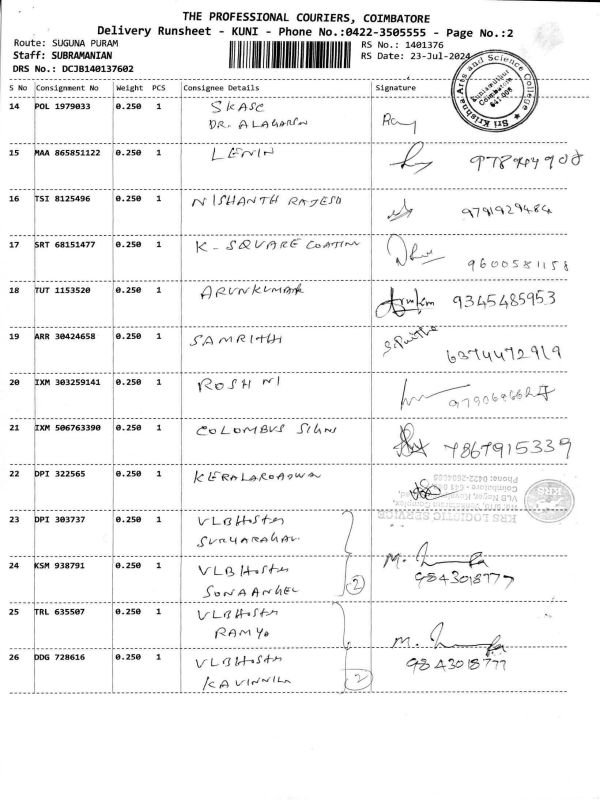 THE PROFESSIONAL COURIERS, COIMBATORE
Delivery Runsheet - KUNI - Phone No.:0422-3505555 - Page No.:2
Route: SUGUNA PURAM RS No.: 1401376
Staff: SUBRAMANIAN RS Date: 23-Jul-2024
DRS No.: DCJB140137602
S No Consignment No Weight PCS Consignee Details Signature
14 POL 1979033 0.250 1 SKASC
DR. ALAGARSN
Sri Krishna Arts and Science College
Kuniamuthur
Coimbatore
641 008
15 MAA 865851122 0.250 1 LENIN
16 TSI 8125496 0.250 1 NISHANTH RAJESH 9791929484
17 SRT 68151477 0.250 1 K - SQUARE COATING 9600581158
18 TUT 1153520 0.250 1 ARUNKUMAR 9345485953
19 ARR 30424658 0.250 1 SAMRITHI 6374472919
20 IXM 303259141 0.250 1 ROSHNI
21 IXM 506763390 0.250 1 COLOMBUS SIGNS 7867915339
22 DPI 322565 0.250 1 KERALAROADWA
KRS LOGISTIC SERVICE
VLB Nagar, Kovaipudur,
Phone: 0422-2604005
KRS
23 DPI 303737 0.250 1 VLB Hostey
SURYARAGAV
24 KSM 938791 0.250 1 VLB Hostey M. 9843018777
SONAANGEL 2
25 TRL 635507 0.250 1 VLB Hostey
RAMYA M.
26 DDG 728616 0.250 1 VLB Hostey 9843018777
KAVINNILA 2